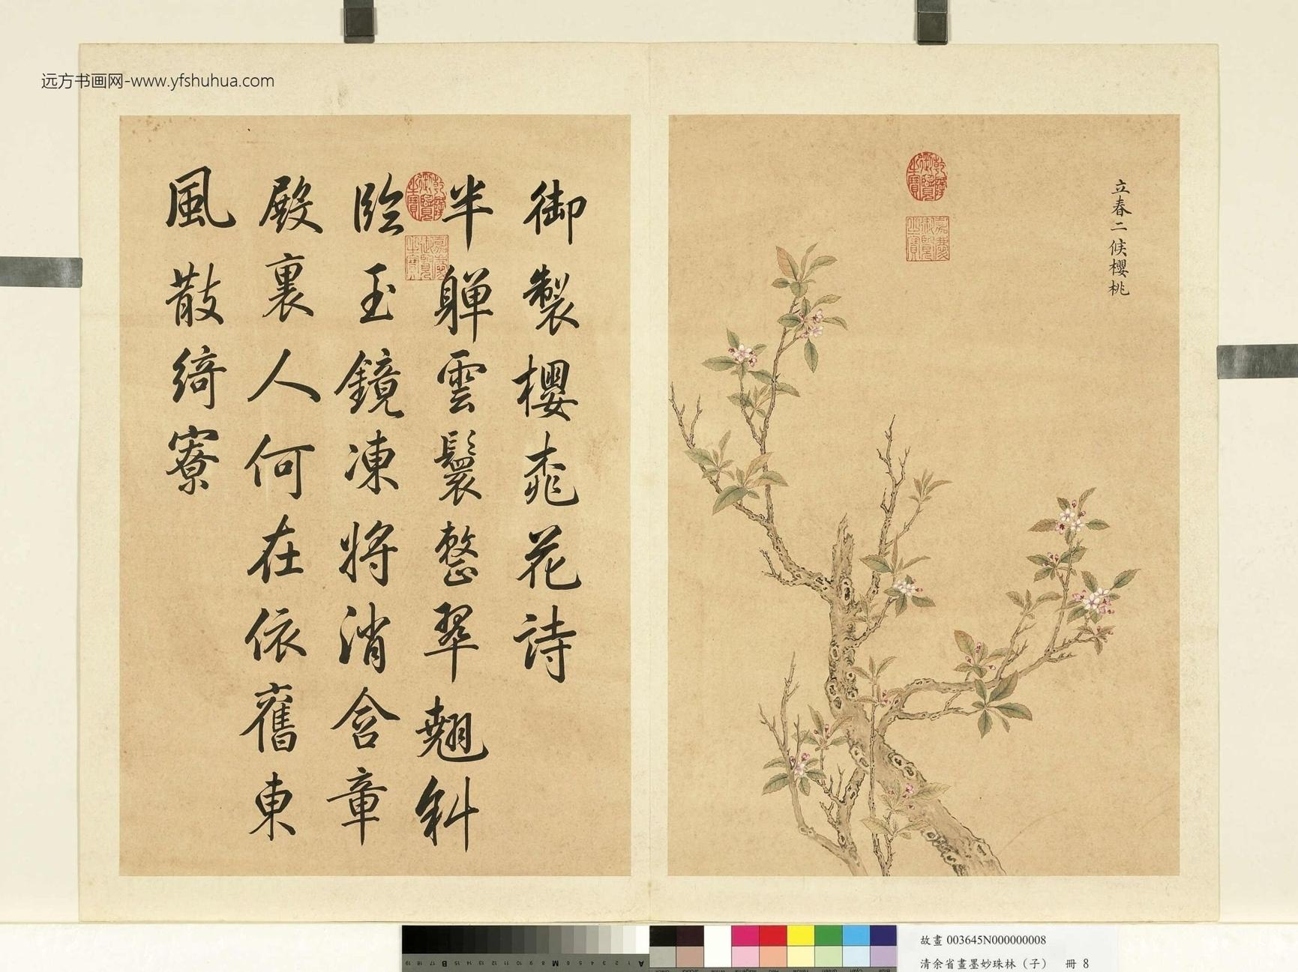 远方书画网-www.yfshuhua.com
立春二候櫻桃
御製櫻桃花詩
半軃雲鬟整翠翹斜
臨玉鏡凍將消含章
殿裏人何在依舊東
風散綺寮
故畫 003645N000000008
清余省畫墨妙珠林（子） 冊 8